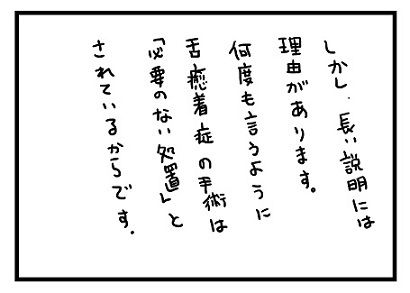 しかし、長い説明には
理由があります。
何度も言うように
舌癒着症の手術は
「必要のない処置」と
されているからです。